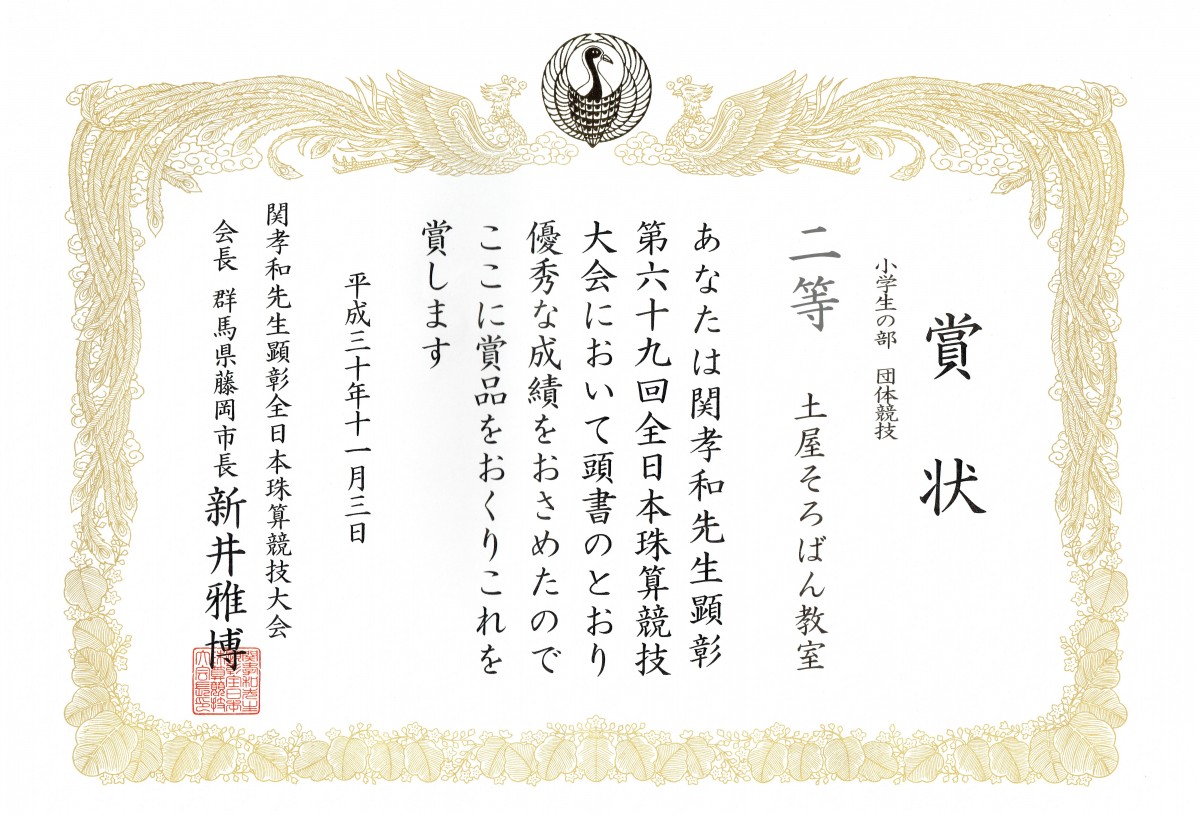 賞状
小学生の部 団体競技
二等 土屋そろばん教室
あなたは関孝和先生顕彰
第六十九回全日本珠算競技
大会において頭書のとおり
優秀な成績をおさめたので
ここに賞品をおくりこれを
賞します
平成三十年十一月三日
関孝和先生顕彰全日本珠算競技大会
会長 群馬県藤岡市長 新井雅博